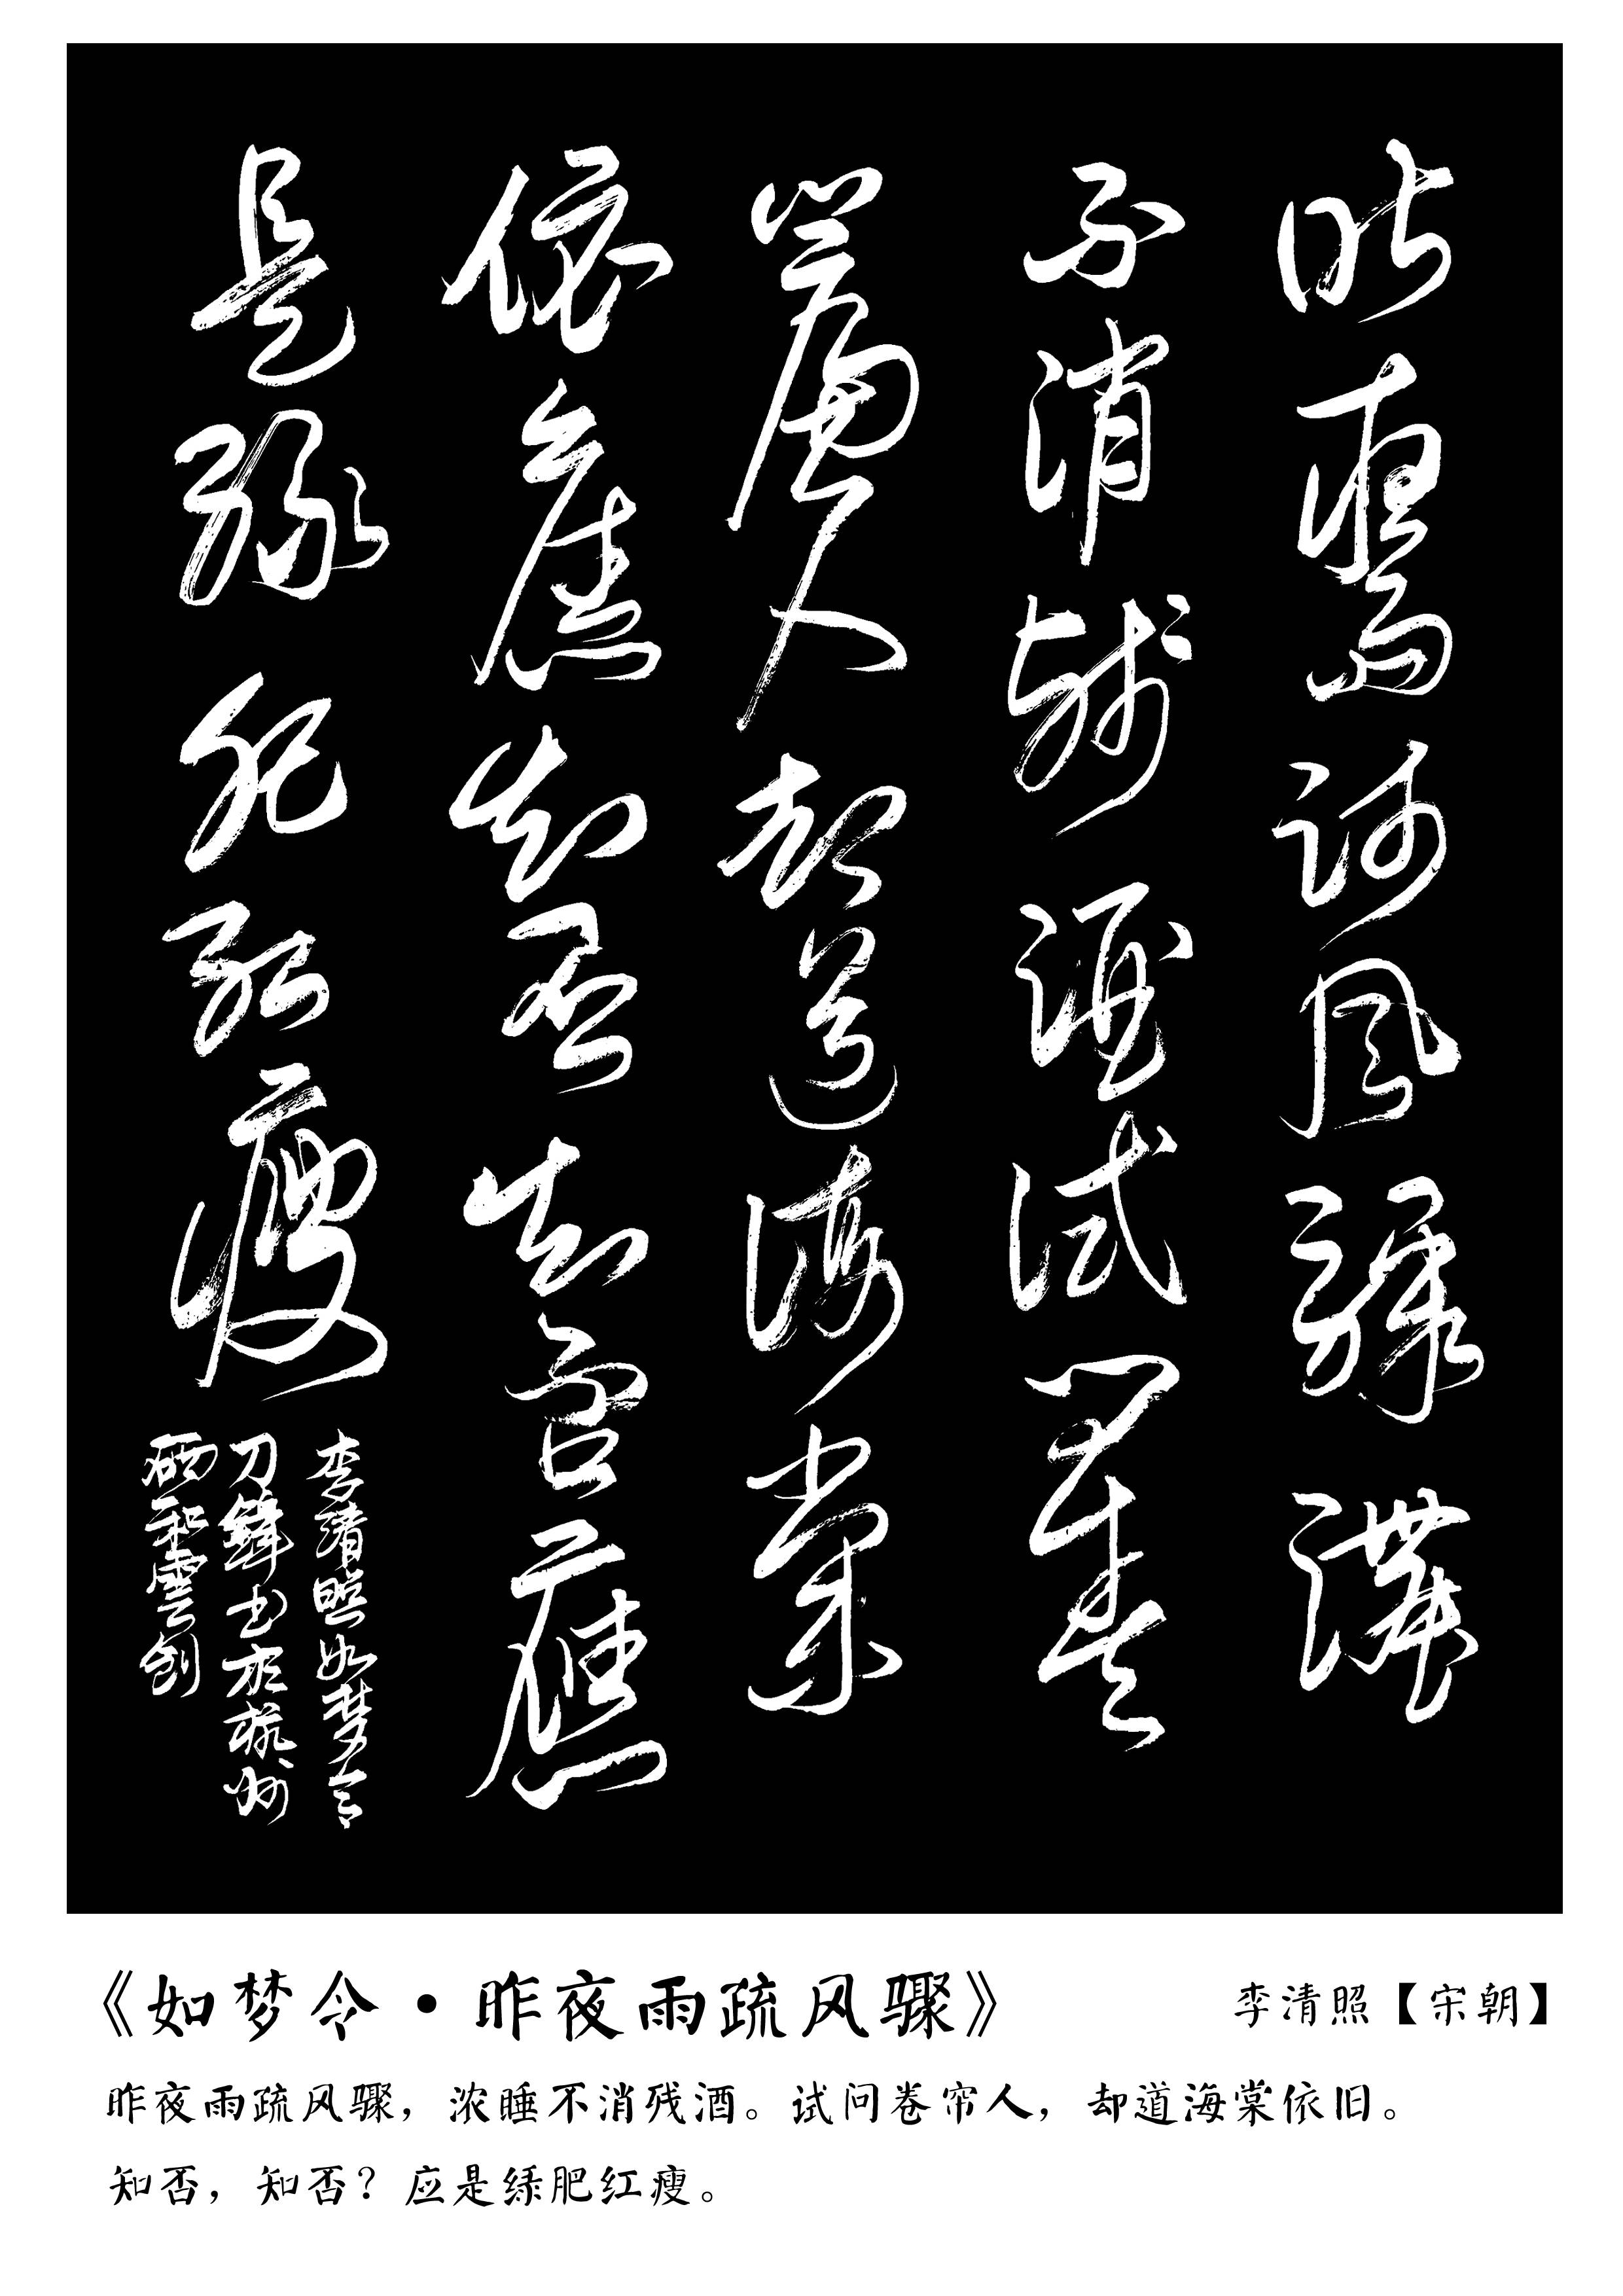 昨夜雨疏風驟濃
不消殘酒試問卷
簾人却道海棠
依舊知否知否應
是綠肥紅瘦
李清照如梦令
刀鋒书於杭州
硒和雲創
《如梦令·昨夜雨疏风骤》
李清照【宋朝】
昨夜雨疏风骤，浓睡不消残酒。试问卷帘人，却道海棠依旧。
知否，知否？应是绿肥红瘦。